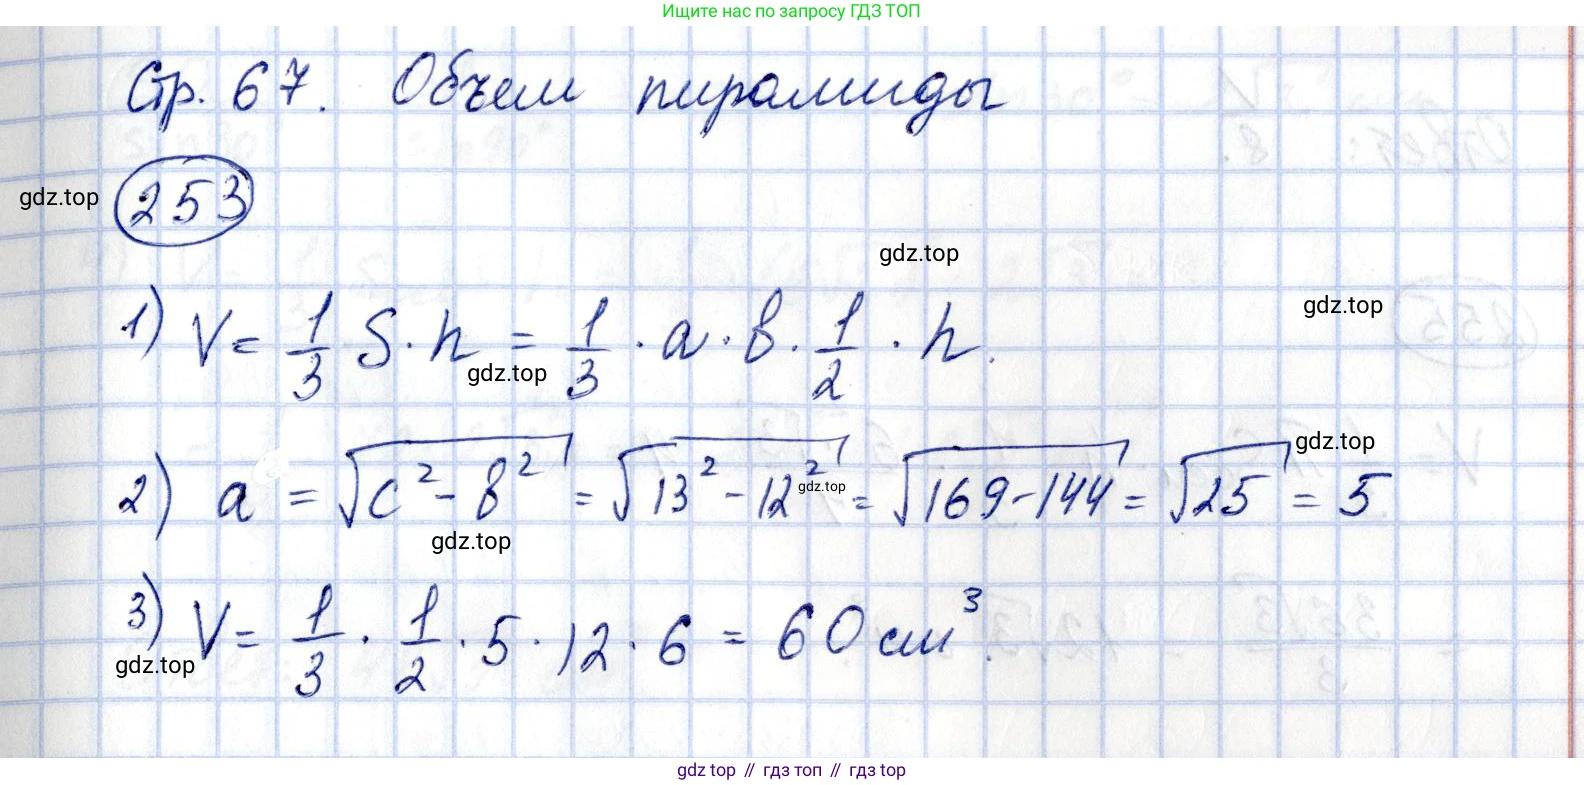 Ищите нас по запросу ГДЗ ТОП
Стр. 67. Объем пирамиды
253
gdz.top
gdz.top
gdz.top
1) V = 1/3 S · h = 1/3 · a · b · 1/2 · h.
gdz.top
gdz.top
2) a = √(c² - b²) = √(13² - 12²) = √(169 - 144) = √25 = 5
gdz.top
gdz.top
3) V = 1/3 · 1/2 · 5 · 12 · 6 = 60 см³.
gdz.top
gdz top // гдз топ // гдз top